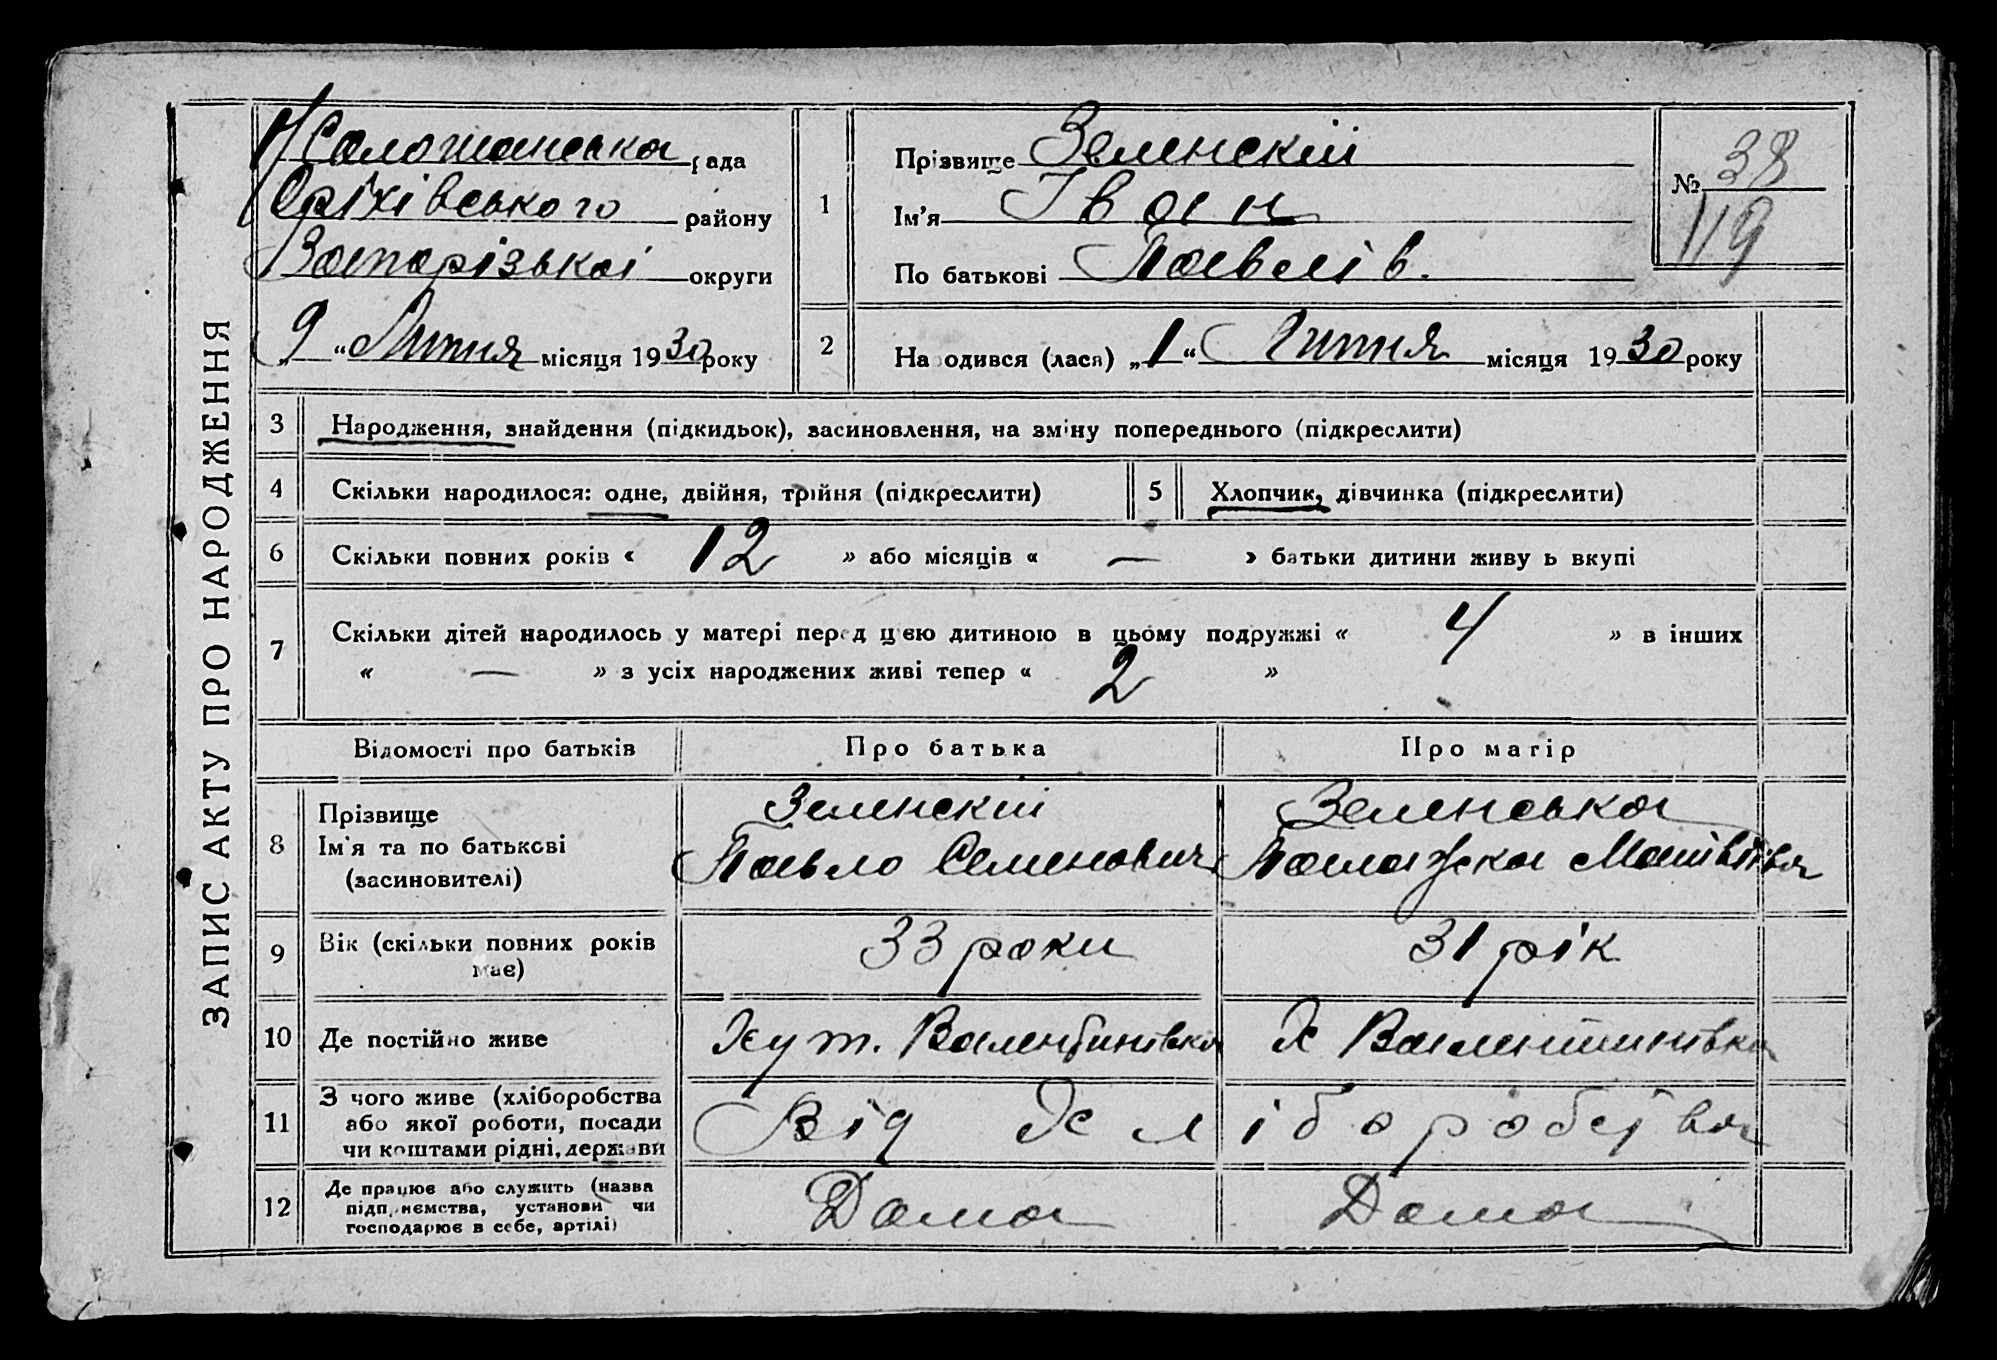 ЗАПИС АКТУ ПРО НАРОДЖЕННЯ
рада
Оріхівського району
Запорізькоі округи
„9“ Липня місяця 1930 року
1
Прізвище Зеленскій
Ім'я Іван
По батькові Павлів.
№ 38
119
2
Народився (лася) „1“ Липня місяця 1930 року
3 Народження, знайдення (підкидьок), засиновлення, на зміну попереднього (підкреслити)
4 Скільки народилося: одне, двійня, трійня (підкреслити)
5 Хлопчик, дівчинка (підкреслити)
6 Скільки повних років « 12 » або місяців « — » батьки дитини живуть вкупі
7 Скільки дітей народилось у матері перед цією дитиною в цьому подружжі « 4 » в інших
« — » з усіх народжених живі тепер « 2 »
Відомості про батьків Про батька Про матір
8 Прізвище
Ім'я та по батькові
(засиновителі)
Зеленскій
Павло Семенович
Зеленська
Палажка Матвіівна
9 Вік (скільки повних років
має)
33 роки
31 рік
10 Де постійно живе
Хут. Валентинівка
Х Валентинівка
11 З чого живе (хліборобства
або якої роботи, посади
чи коштами рідні, держави
Від Хліборобства
12 Де працює або служить (назва
підприємства, установи чи
господарює в себе, артілі)
Дома
Дома